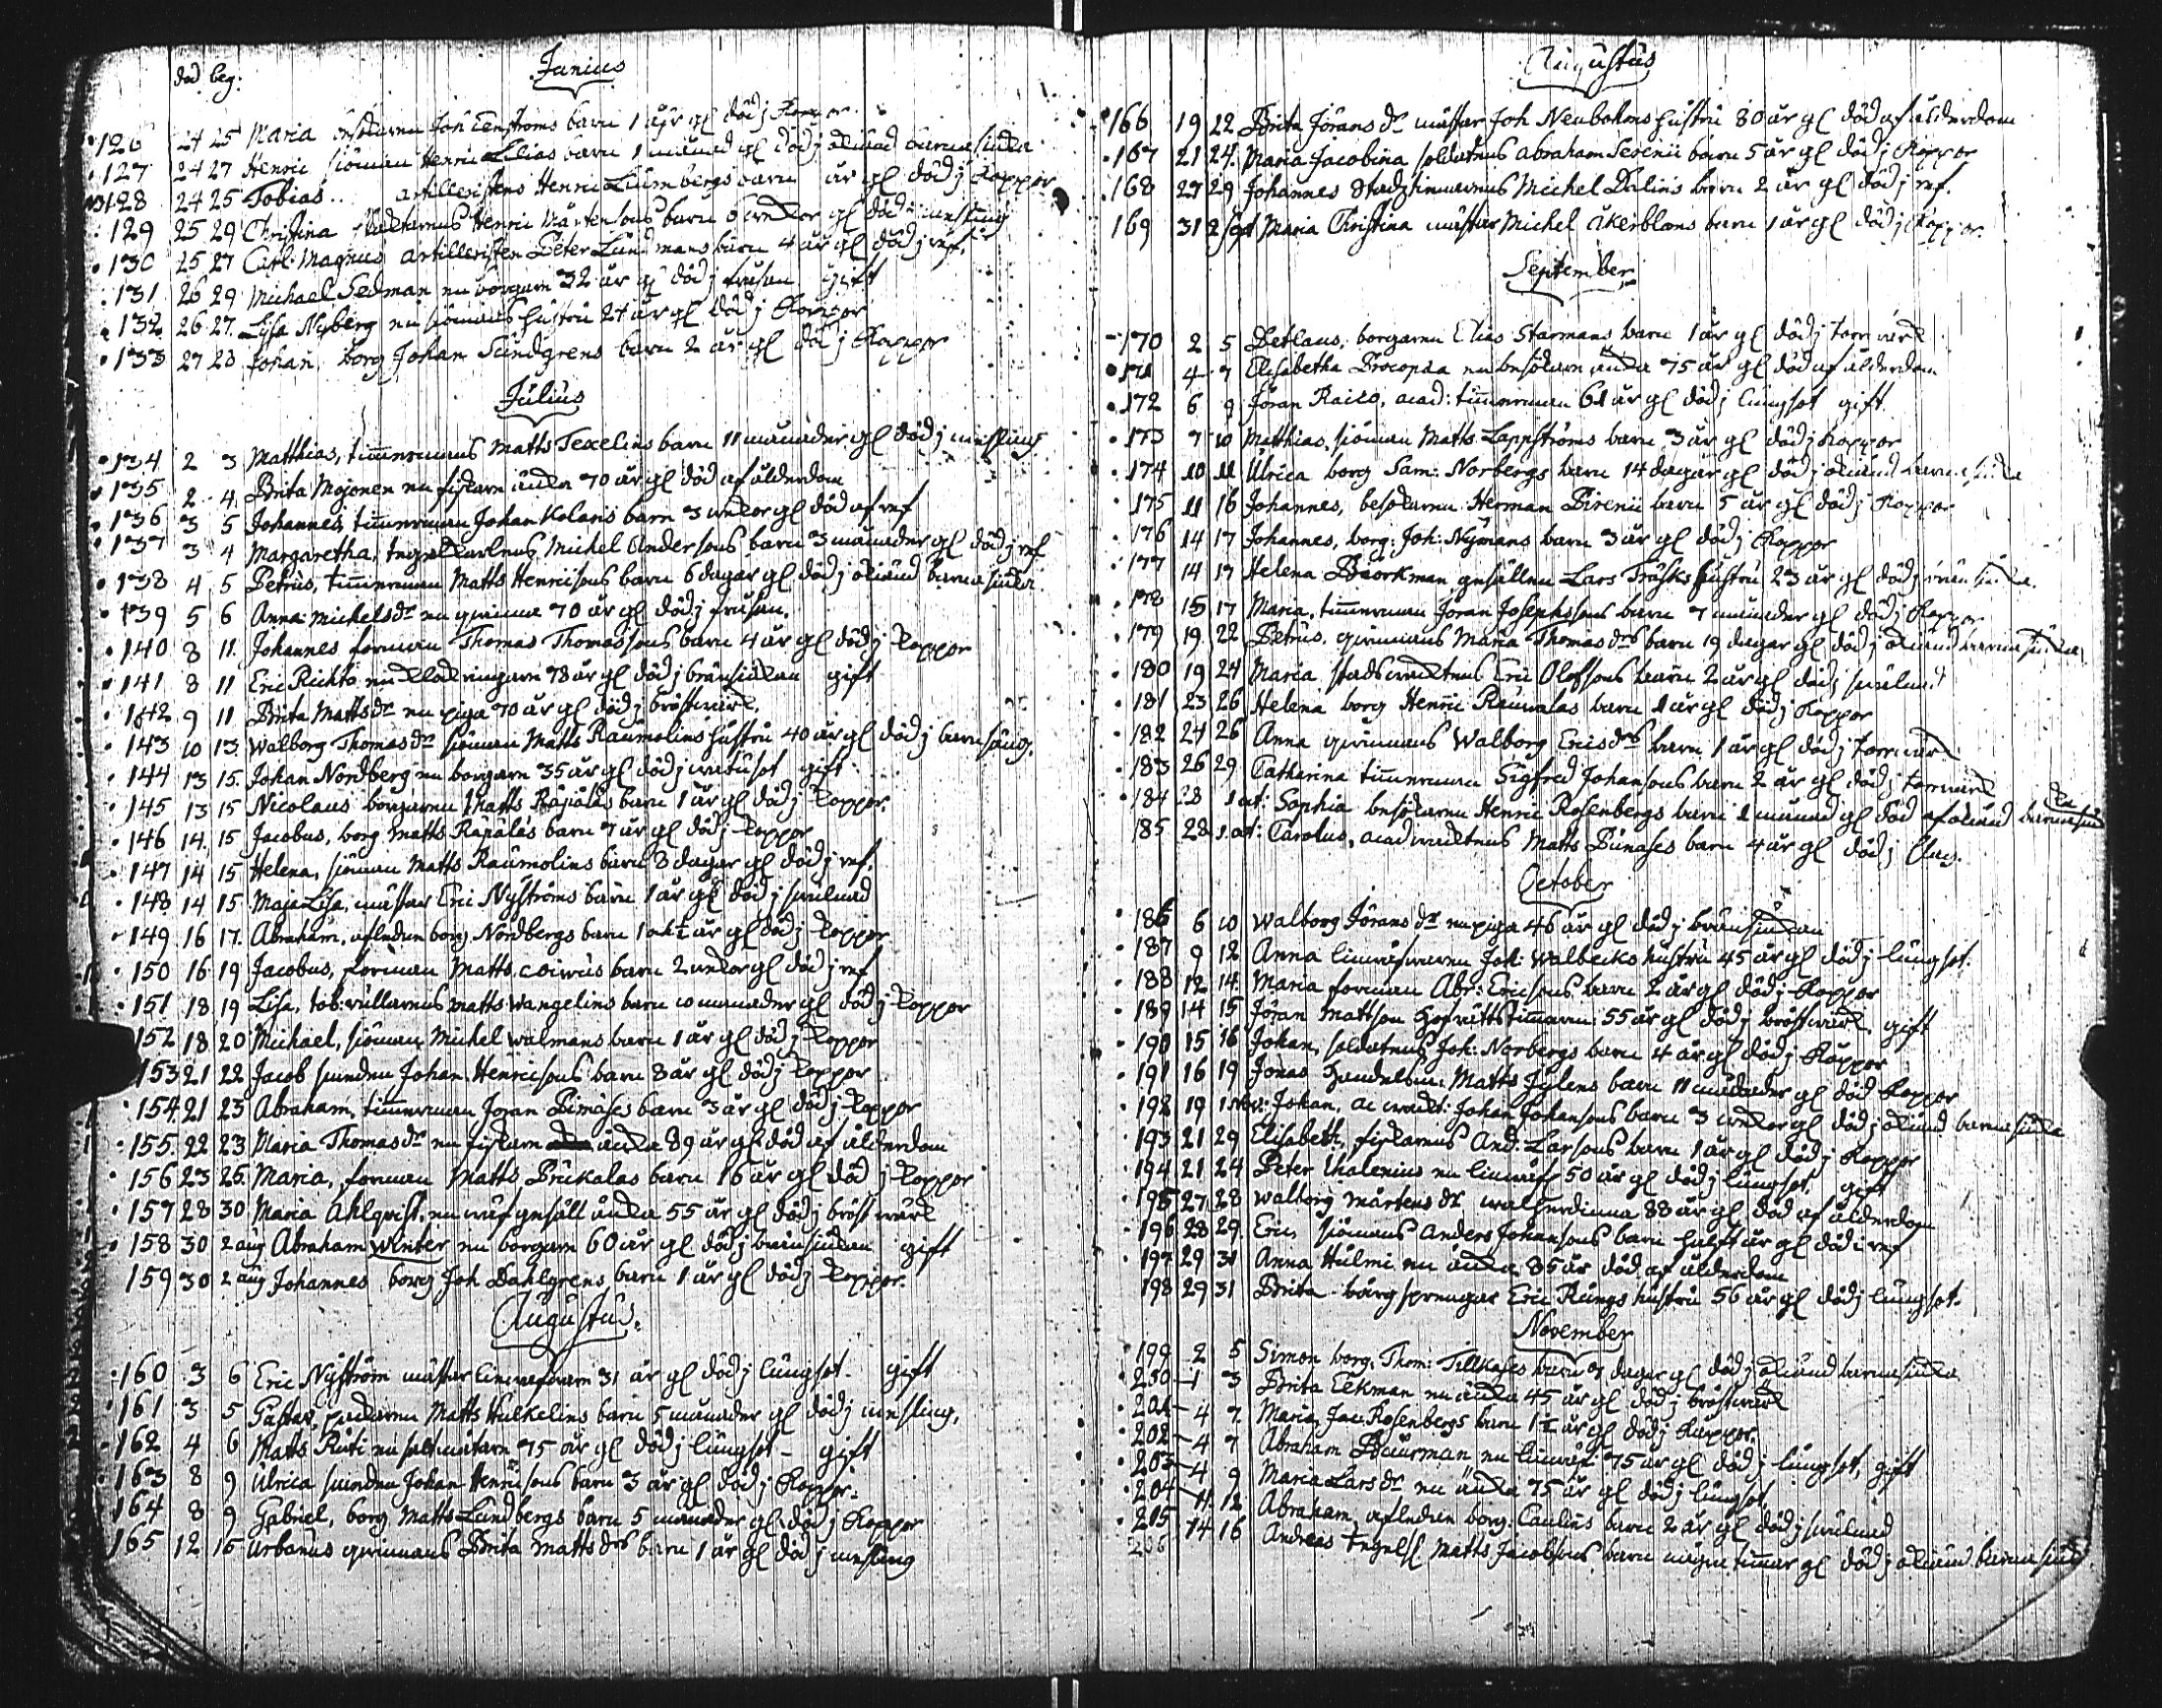 död beg:
Junius
126 24 25 Maria Joh Eenstroms barn 1 åhr gl död j Koppor
127 24 27 Henric siöman Henric Lilias barn 1 månad gl död j okiänd barnasiuka
128 24 25 Tobias artilleristens Henric Liümbergs barn år gl död j Koppor
129 25 29 Christina Henric Mårtensons barn 6 wekor gl död i messling
130 25 27 Carl Magnus artilleristen Peter Lundmans barn 4 år gl död j ref.
131 26 29 Michael Sedman en borgare 32 år gl död j frusan gift
132 26 27. Lisa Nyberg en siömans hustru 24 år gl död j Koppor
133 27 28 Johan, borg Johan Sundgrens barn 2 år gl död j Koppor
Julius
134 2 3 Matthias, timmermans Matts Texelins barn 11 månader gl död j messling
135 2 4. Brita Mojonen en fiskare änka 70 år gl död af ålderdom
136 3 5 Johannes, timmerman Johan Kolaris barn 3 wekor gl död af ref
137 3 4 Margaretha, Michel Andersons barn 3 månader gl död j ref
138 4 5 Petrus, timmerman Matts Henricsons barn 6 dagar gl död j okiänd barnasiuka
139 5 6 Anna Michelsdr en qwinna 70 år gl död j frusan.
140 8 11. Johannes forman Thomas Thomassons barn 4 år gl död j Koppor
141 8 11 Eric Richto en klockringare 78 år gl död j bränsiukan gift
142. 9 11 Brita Mattsdr en piga 70 år gl död j bröstwärk.
143 10 13. Walborg Thomasdr siöman Matts Raumolins hustru 40 år gl död j barnsäng.
144 13 15. Johan Nordberg en borgare 35 år gl död j watusot gift
145 13 15 Nicolaus borgaren Matts Räpäläs barn 1 år gl död j Koppor.
146 14. 15 Jacobus, borg Matts Räpäläs barn 7 år gl död j Koppor
147 14 15 Helena, siöman Matts Raumolins barn 8 dagar gl död j ref.
148 14 15. Maja Lisa, mästar Eric Nyströms barn 1 år gl död j swulnad
149 16 17. Abraham, afledne borg. Nordbergs barn 1 ok ½ år gl död j Koppor
150 16 19 Jacobus, forman Matts Coirus barn 2 wekor gl död j ref
151 18 19 Lisa, tob: Matts Wangelins barn 10 månader gl död j Koppor
152 18 20 Michael, siöman Michel Walmans barn 1 år gl död j Koppor
153 21 22. Jacob smeden Johan Henricsons barn 8 år gl död j Koppor
154. 21 23 Abraham, timmerman Jöran Pimases barn 3 år gl död j Koppor
155. 22 23 Maria Thomasdr en fiskare änka 89 år gl död af ålderdom
156 23 25. Maria, forman Matts Prukalas barn 16 år gl död j Koppor
157 28 30 Maria Ahlqvist, en gesäll änka 55 år gl död j bröstwärk
158 30 2 aug Abraham Winter en borgare 60 år gl död j bränsiukan gift
159 30 2 aug Johannes borg Joh Dahlgrens barn 1 år gl död j Koppor.
Augustus.
160 3 6 Eric Nyström mästar linwäfware 31 år gl död j lungsot. gift
161 3 5 Gustav, Matts Hulkelins barn 5 månader gl död j messling.
162 4 6 Matts Ruti en saltmätare 75 år gl död j lungsot - gift
163 8 9 Ulrica smeden Johan Henricsons barn 3 år gl död j Koppor.
164 8 9 Gabriel, borg Matts Lundbergs barn 5 månader gl död j Koppor
165 12 15 Urbanus qwinnans Brita Mattsdrs barn 1 år gl död j messling
Augustus
166 19 22 Brita Jöransdr mästar Joh Neubohms hustru 80 år gl död af ålderdom
167 21 24. Maria Jacobina soldatens Abraham Serenii barn 5 år gl död j Koppor
168 27 29 Johannes Michel Dalins barn 2 år gl död j ref.
169 31 2 sept Maria Christina mästar Michel Åkerbloms barn 1 år gl död j Koppor.
September
170 2 5 Detlaus, borgaren Elias Starmans barn 1 år gl död j torrwärk
171 4 7 Elisabetha Procopaa en besökare änka 75 år gl död af ålderdom
172 6 9 Jöran Raico, acad: timmerman 61 år gl död j lungsot gift
173 7 10 Matthias, siöman Matts Lappströms barn 3 år gl död j Koppor
174 10 11 Ulrica borg Sam: Norbergs barn 14 dagar gl död j okiänd barnasiuka
175 11 16 Johannes, besökaren Herman Pirenii barn 5 år gl död j Koppor
176 14 17 Johannes, borg: Joh: Nymans barn 3 år gl död j Koppor
177 14 17 Helena Biörkman gesällen Lars Träsks hustru 23 år gl död j
178 15 17 Maria, timmerman Jöran Josephssons barn 7 månader gl död j Koppor
179 19 22 Petrus, qwinnans Maria Thomasdrs barn 19 dagar gl död j okiänd barnasiuka
180 19 24 Maria stadswacktens Eric Olofsons barn 2 år gl död j swulnad
181 23 26 Helena borg Henric Raumolas barn 1 år gl död j Koppor
182 24 26 Anna qwinnans Walborg Ericsdrs barn 1 år gl död j torrwärk
183 26 29 Catharina timmerman Sigfred Johansons barn 2 år gl död j torrwärk
184 28 1 oct: Sophia besökaren Henric Rosenbergs barn 1 månad gl död af okiänd barnasiuka
185 28 1. oct: Carolus, acad wacktens Matts Punases barn 4 år gl död j slag.
October
186 6 10 Walborg Jöransdr en piga 46 år gl död j bränsiukan
187 9 12 Anna linwäfwaren Joh: Walbecks hustru 45 år gl död j lungsot.
188 12 14. Maria forman Abr: Ericsons barn 2 år gl död j Koppor
189 14 15 Jöran Mattson 55 år gl död j bröstwärk. gift
190 15 16 Johan, soldatens Joh: Norbergs barn 4 år gl död j Koppor
191 16 19 Jonas Matts Jylens barn 11 månader gl död Koppor
192 19 1 nov: Johan, ac wackt: Johan Johansons barn 3 wekor gl död j okiänd barnasiuka
193 21 29 Elisabeth, fiskarens And: Larsons barn 1 år gl död j Koppor
194 21 24 Peter Thalenius en linwäf 50 år gl död j lungsot. gift
195 27 28 Walborg Mårtensdr 88 år gl död af ålderdom
196 28 29. Eric, siömans Anders Johansons barn half år gl död i ref
197 29 31 Anna Hulmi en änka 85 år död af ålderdom
198 29 31 Brita bärgsprengar Eric Rungs hustru 56 år gl död j lungsot.
November
199 2 5 Simon borg. Thom: Tillkases barn 9 dagar gl död j okiänd barnasiuka
200 1 3 Brita Eekman en änka 45 år gl död j bröstwärk
201 4 7. Maria, Jac. Rosenbergs barn 1½ år gl död j Koppor.
202 4 7 Abraham Buurman en linwäf 75 år gl död j lungsot, gift
203 4 9 Maria Larsdr en änka 75 år gl död j lungsot.
204 11 12 Abraham, afledne borg: Caulins barn 2 år gl död j swulnad
205 14 16 Andreas Matts Jacobsons barn några timmar gl död j okiänd barnasiuk
206